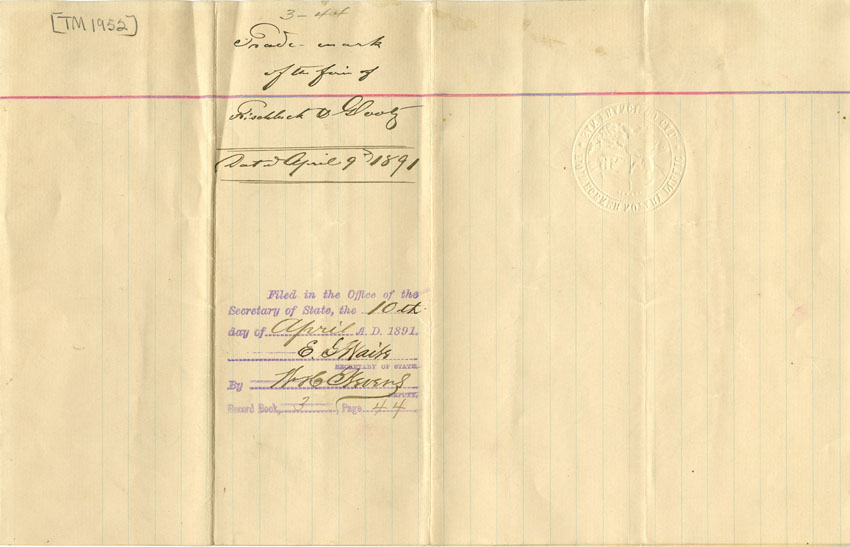 [TM 1952]
3-44
Trade-mark
of the firm of
Fischbeck & Glootz
Dated April 9th 1891
Filed in the Office of the
Secretary of State, the 10th
day of April A. D. 1891.
E. G. Waite
SECRETARY OF STATE.
By Wm C Stevens
DEPUTY.
Record Book, 3, Page 44